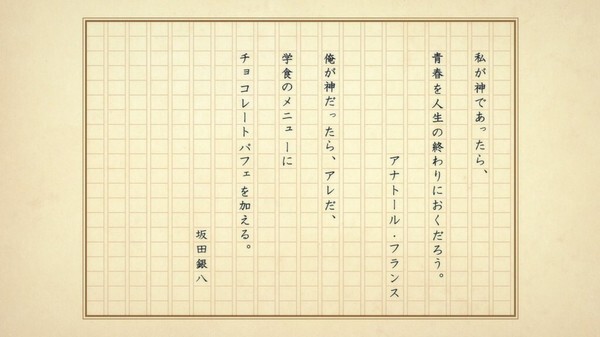 私が神であったら、
青春を人生の終わりにおくだろう。
アナトール・フランス
俺が神だったら、アレだ、
学食のメニューに
チョコレートパフェを加える。
坂田銀八